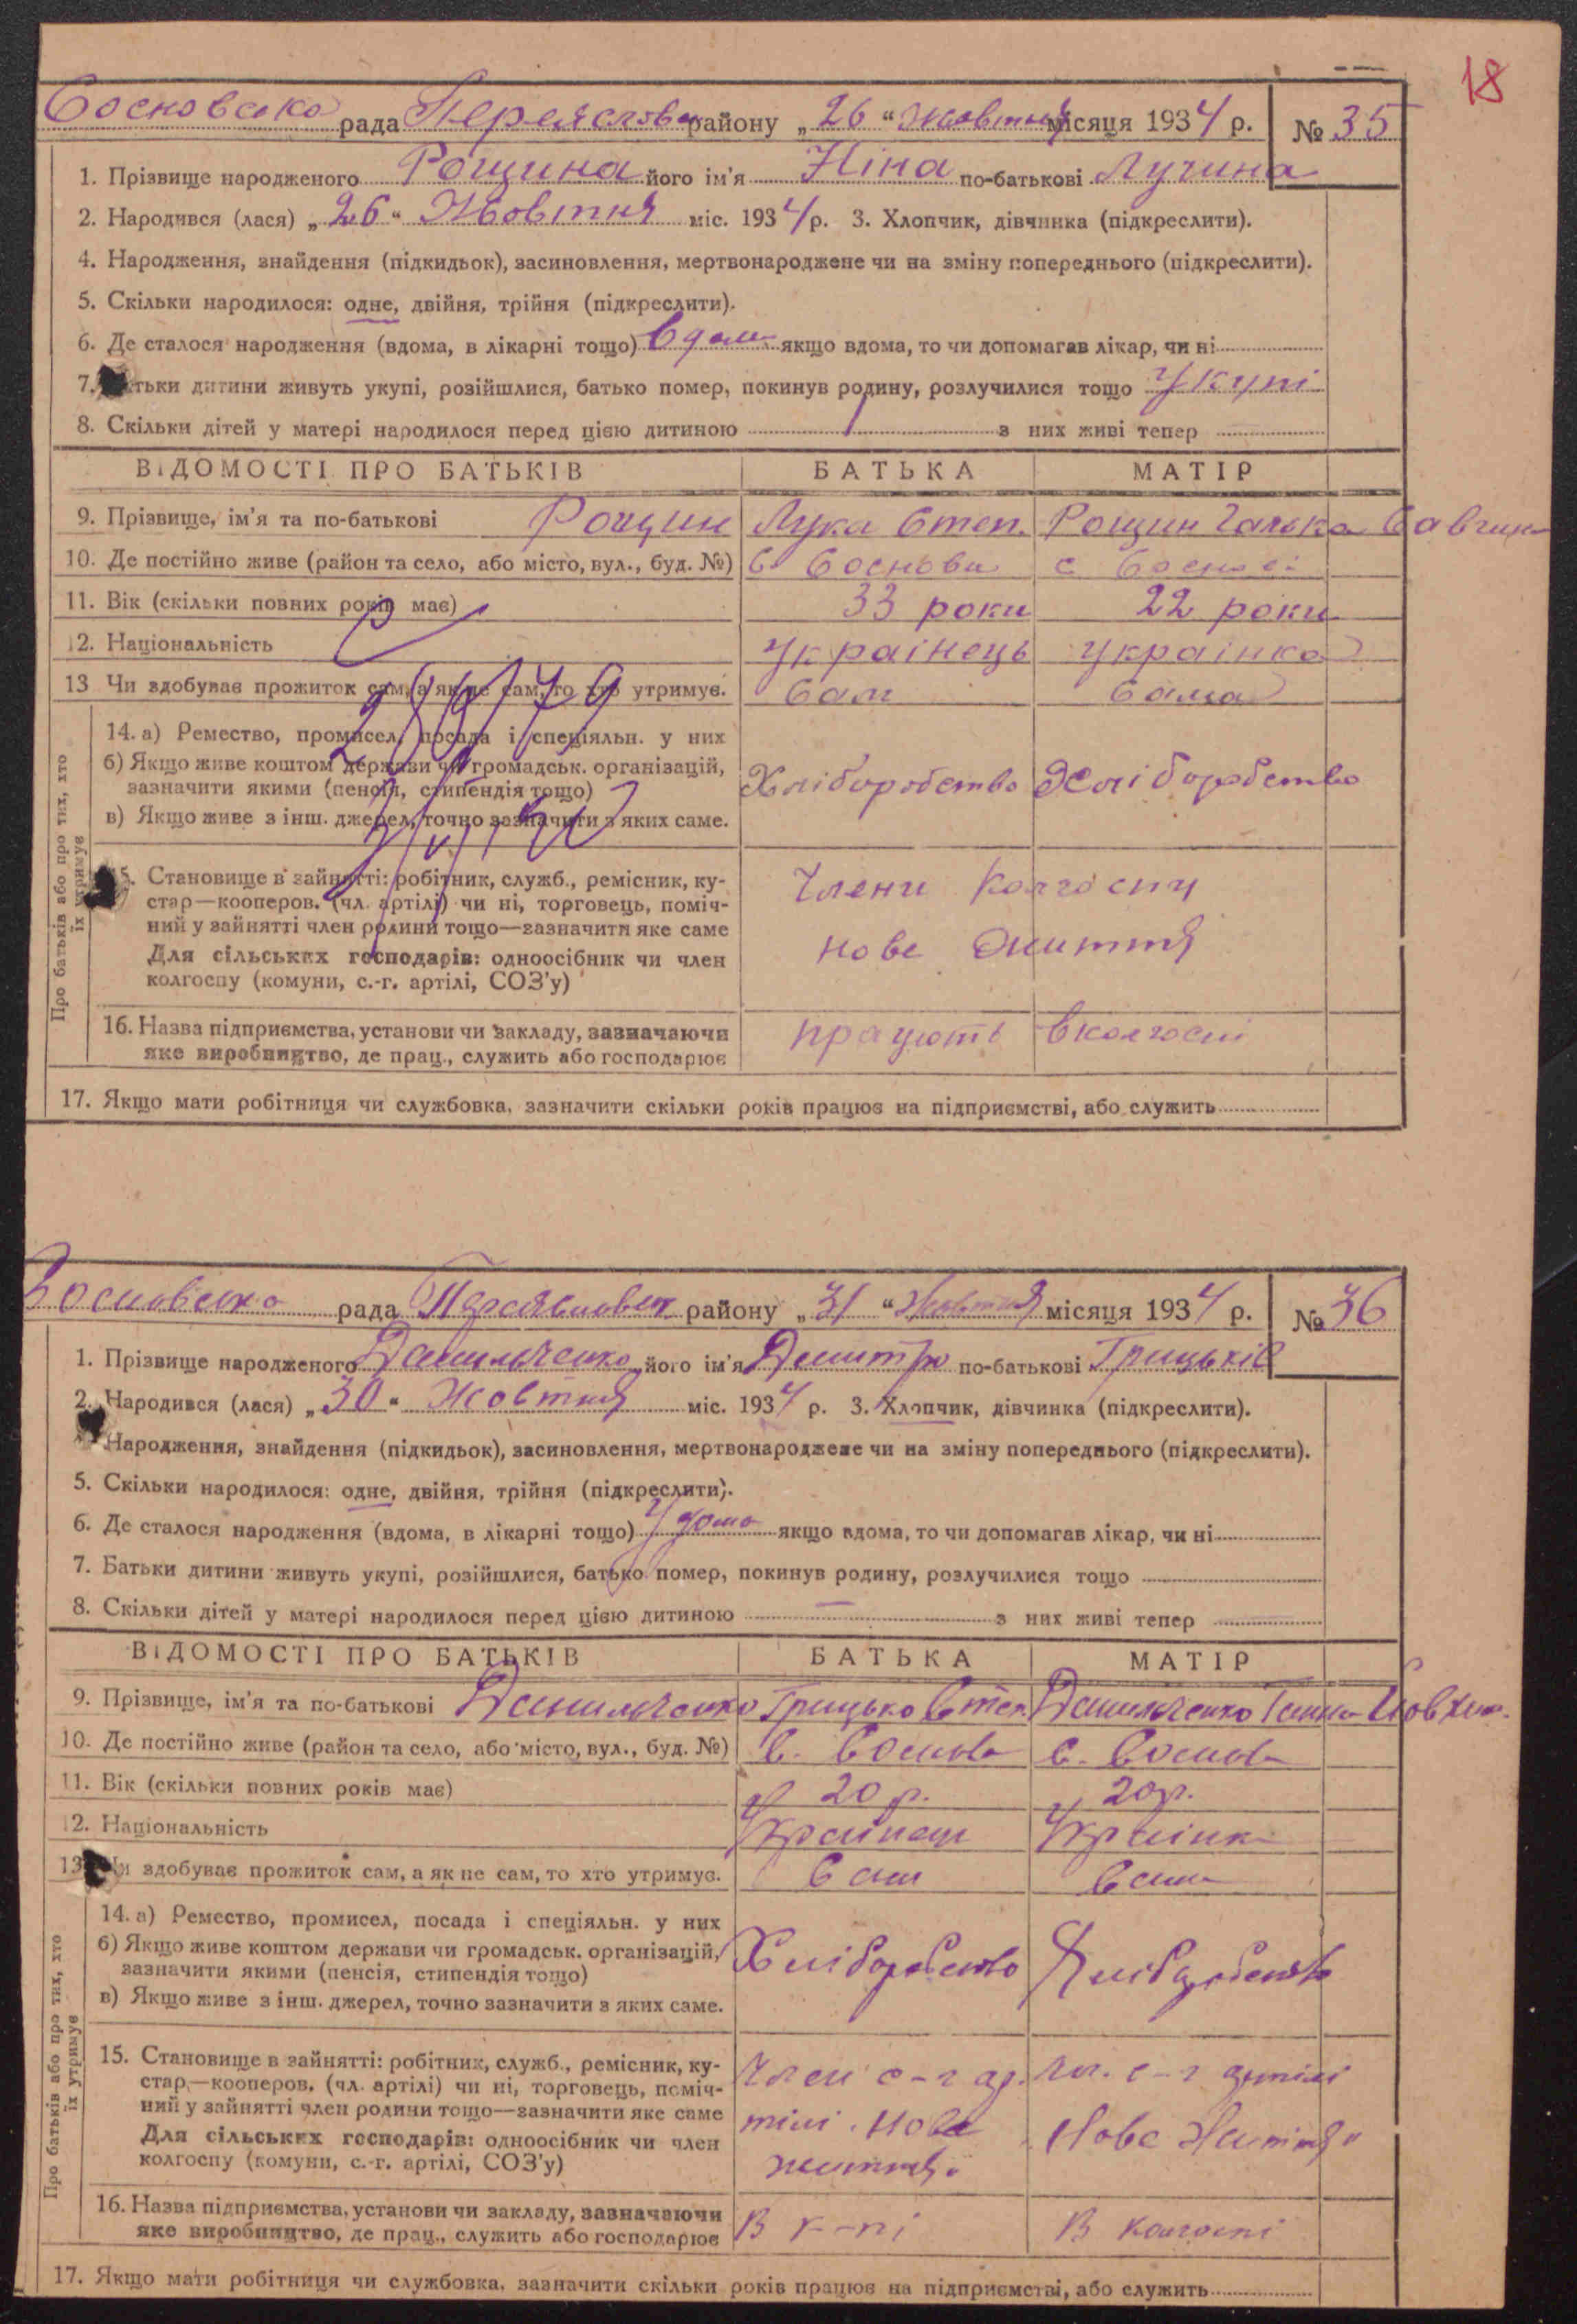 18
Сосновська рада Переяславськ району „26“ жовтня місяця 1934 р. № 35
1. Прізвище народженого Рощина його ім'я Ніна по-батькові Лучина
2. Народився (лася) „26“ Жовтня міс. 1934 р. 3. Хлопчик, дівчинка (підкреслити).
4. Народження, знайдення (підкидьок), засиновлення, мертвонароджене чи на зміну попереднього (підкреслити).
5. Скільки народилося: одне, двійня, трійня (підкреслити).
6. Де сталося народження (вдома, в лікарні тощо) вдома якщо вдома, то чи допомагав лікар, чи ні
7. Батьки дитини живуть укупі, розійшлися, батько помер, покинув родину, розлучилися тощо Укупі
8. Скільки дітей у матері народилося перед цією дитиною 1 з них живі тепер
ВІДОМОСТІ ПРО БАТЬКІВ БАТЬКА МАТІР
9. Прізвище, ім'я та по-батькові Рощин Лука Степ. Рощин Галька Савчина
10. Де постійно живе (район та село, або місто, вул., буд. №) С Соснова с Соснові
11. Вік (скільки повних років має) 33 роки 22 роки
12. Національність Українець Українка
13 Чи здобуває прожиток сам, а як не сам, то хто утримує. Сам Сама
Про батьків або про тих, хто їх утримує
14. а) Ремество, промисел, посада і спеціяльн. у них
б) Якщо живе коштом держави чи громадськ. організацій,
зазначити якими (пенсія, стипендія тощо) Хліборобство Хліборобство
в) Якщо живе з інш. джерел, точно зазначити з яких саме.
15. Становище в зайнятті: робітник, служб., ремісник, ку- Члени колгоспу
стар—кооперов. (чл. артілі) чи ні, торговець, поміч-
ний у зайнятті член родини тощо—зазначити яке саме нове життя
Для сільських господарів: одноосібник чи член
колгоспу (комуни, с.-г. артілі, СОЗ'у)
16. Назва підприємства, установи чи закладу, зазначаючи працюють в колгоспі
яке виробництво, де прац., служить або господарює
17. Якщо мати робітниця чи службовка, зазначити скільки років працює на підприємстві, або служить
Сосновська рада Переяславськ району „31“ Жовтня місяця 1934 р. № 36
1. Прізвище народженого Данильченко його ім'я Дмитро по-батькові Грицьків
2. Народився (лася) „30“ Жовтня міс. 1934 р. 3. Хлопчик, дівчинка (підкреслити).
Народження, знайдення (підкидьок), засиновлення, мертвонароджене чи на зміну попереднього (підкреслити).
5. Скільки народилося: одне, двійня, трійня (підкреслити).
6. Де сталося народження (вдома, в лікарні тощо) У дома якщо вдома, то чи допомагав лікар, чи ні
7. Батьки дитини живуть укупі, розійшлися, батько помер, покинув родину, розлучилися тощо
8. Скільки дітей у матері народилося перед цією дитиною — з них живі тепер
ВІДОМОСТІ ПРО БАТЬКІВ БАТЬКА МАТІР
9. Прізвище, ім'я та по-батькові Данильченко Грицько Степ. Данильченко Ганна
10. Де постійно живе (район та село, або місто, вул., буд. №) С. Соснова С. Соснова
11. Вік (скільки повних років має) 20 р. 20 р.
12. Національність Українец Українк
13 Чи здобуває прожиток сам, а як не сам, то хто утримує. Сам Сама
Про батьків або про тих, хто їх утримує
14. а) Ремество, промисел, посада і спеціяльн. у них
б) Якщо живе коштом держави чи громадськ. організацій, Хліборобство Хліборобство
зазначити якими (пенсія, стипендія тощо)
в) Якщо живе з інш. джерел, точно зазначити з яких саме.
15. Становище в зайнятті: робітник, служб., ремісник, ку- Член с-г ар. Чл. с-г артілі
стар—кооперов. (чл. артілі) чи ні, торговець, поміч-
ний у зайнятті член родини тощо—зазначити яке саме тілі „Нове „Нове Життя“
Для сільських господарів: одноосібник чи член
колгоспу (комуни, с.-г. артілі, СОЗ'у) життя“
16. Назва підприємства, установи чи закладу, зазначаючи
яке виробництво, де прац., служить або господарює В к-пі В колгоспі
17. Якщо мати робітниця чи службовка, зазначити скільки років працює на підприємстві, або служить